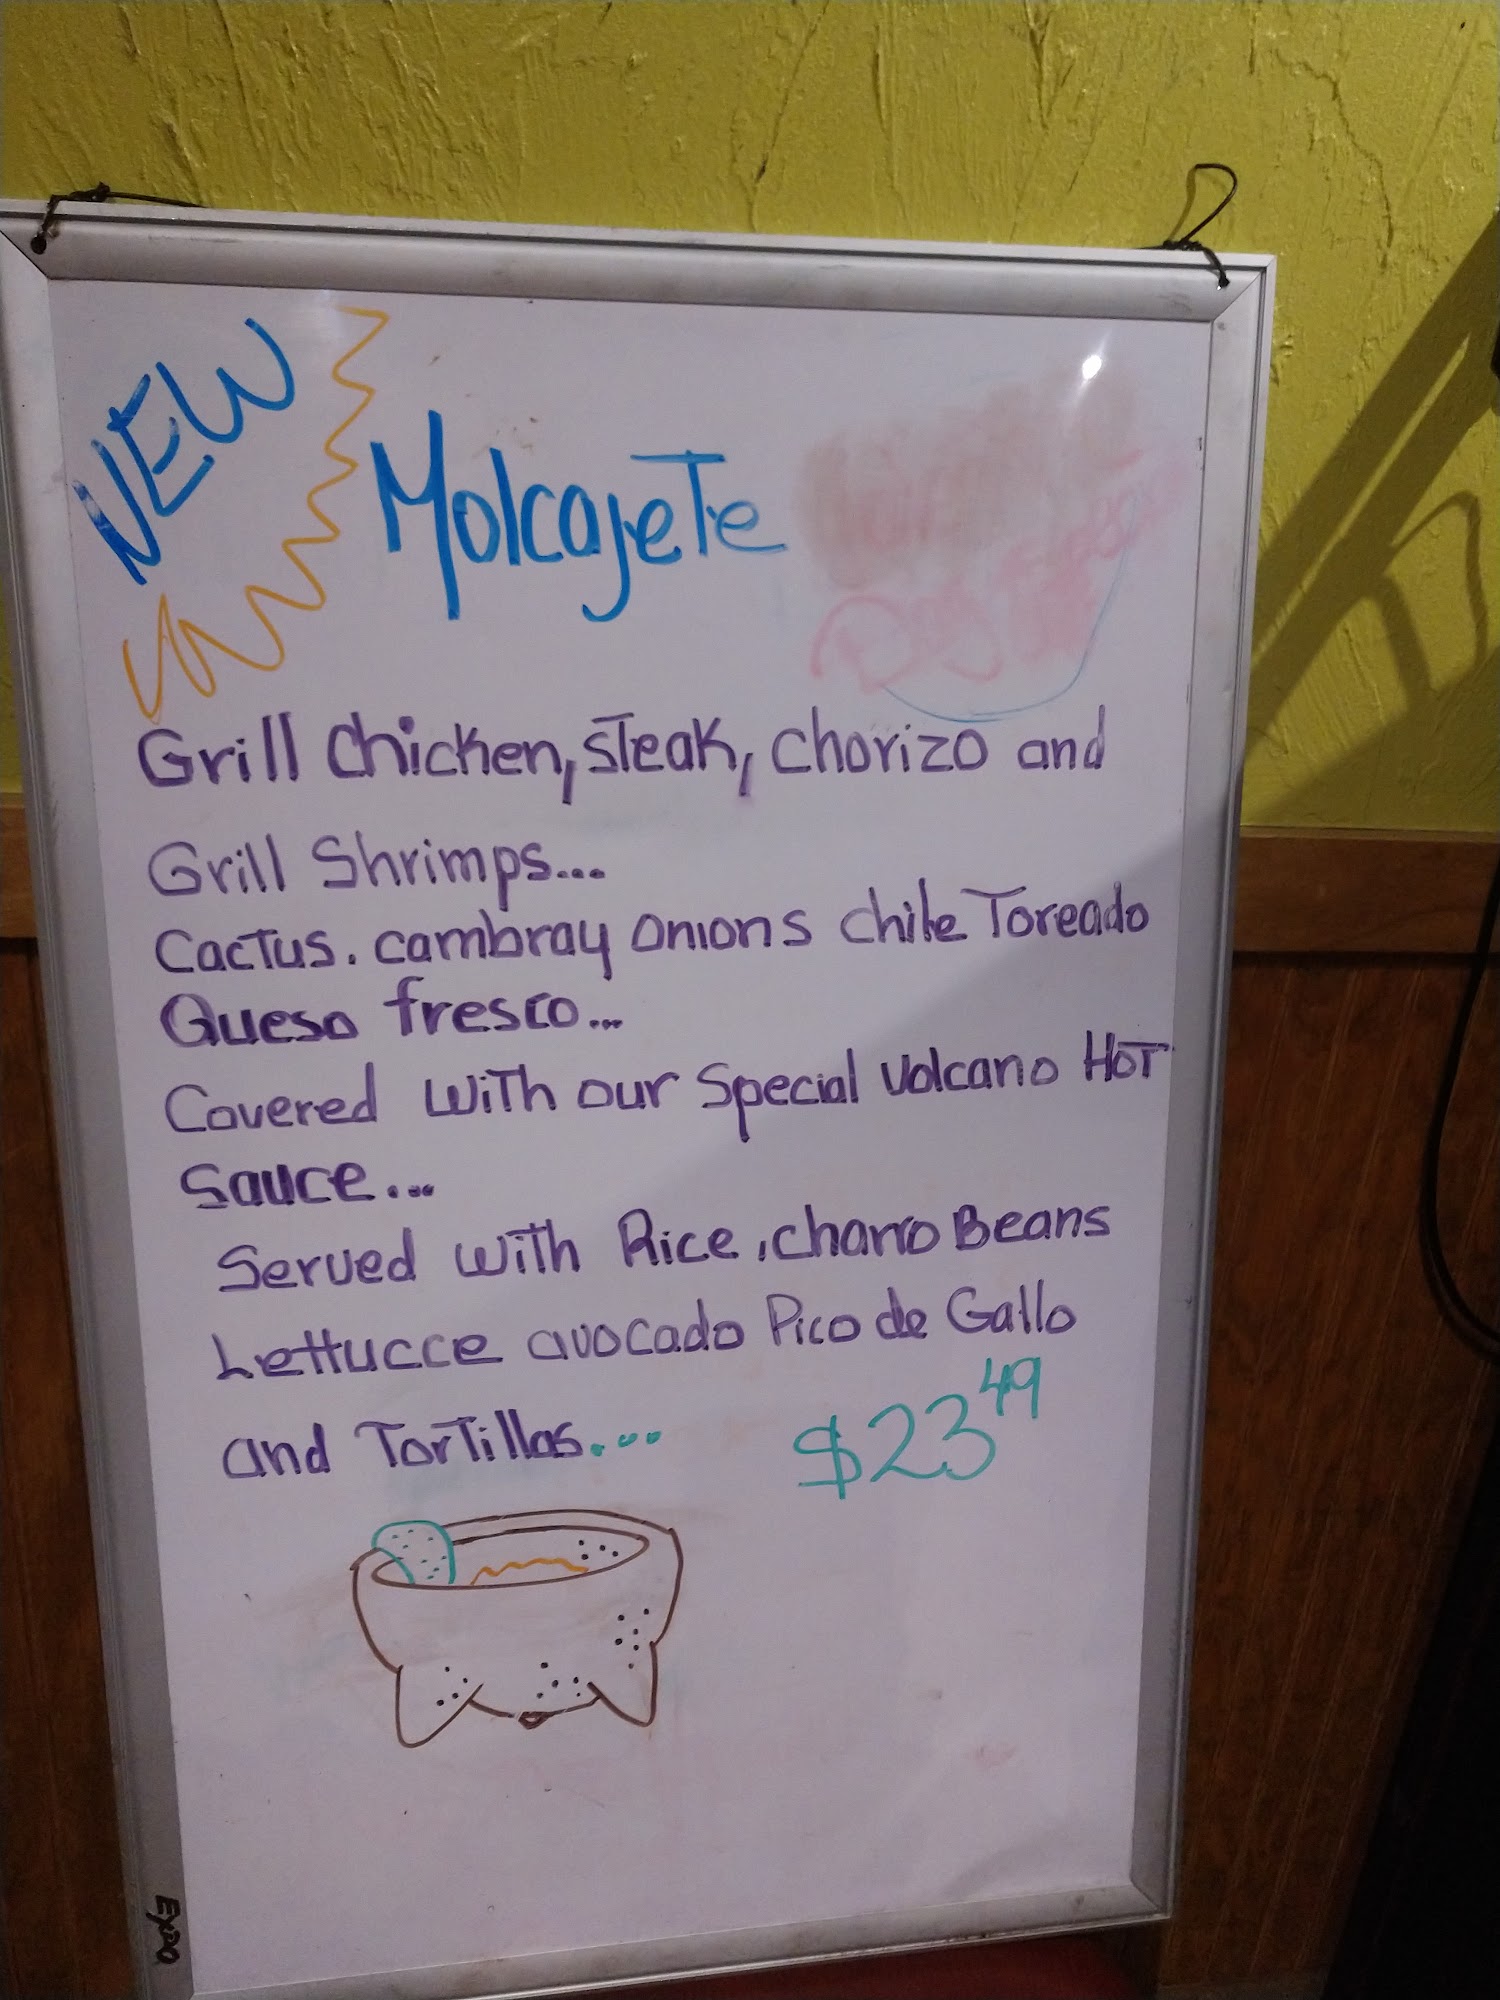 NEW
Molcajete
Grill Chicken, Steak, Chorizo and
Grill Shrimps...
Cactus. cambray onions chile Toreado
Queso fresco...
Covered with our Special Volcano HOT
Sauce...
Served with Rice, charro Beans
Lettucce avocado Pico de Gallo
and Tortillas...
$23 49
Expo